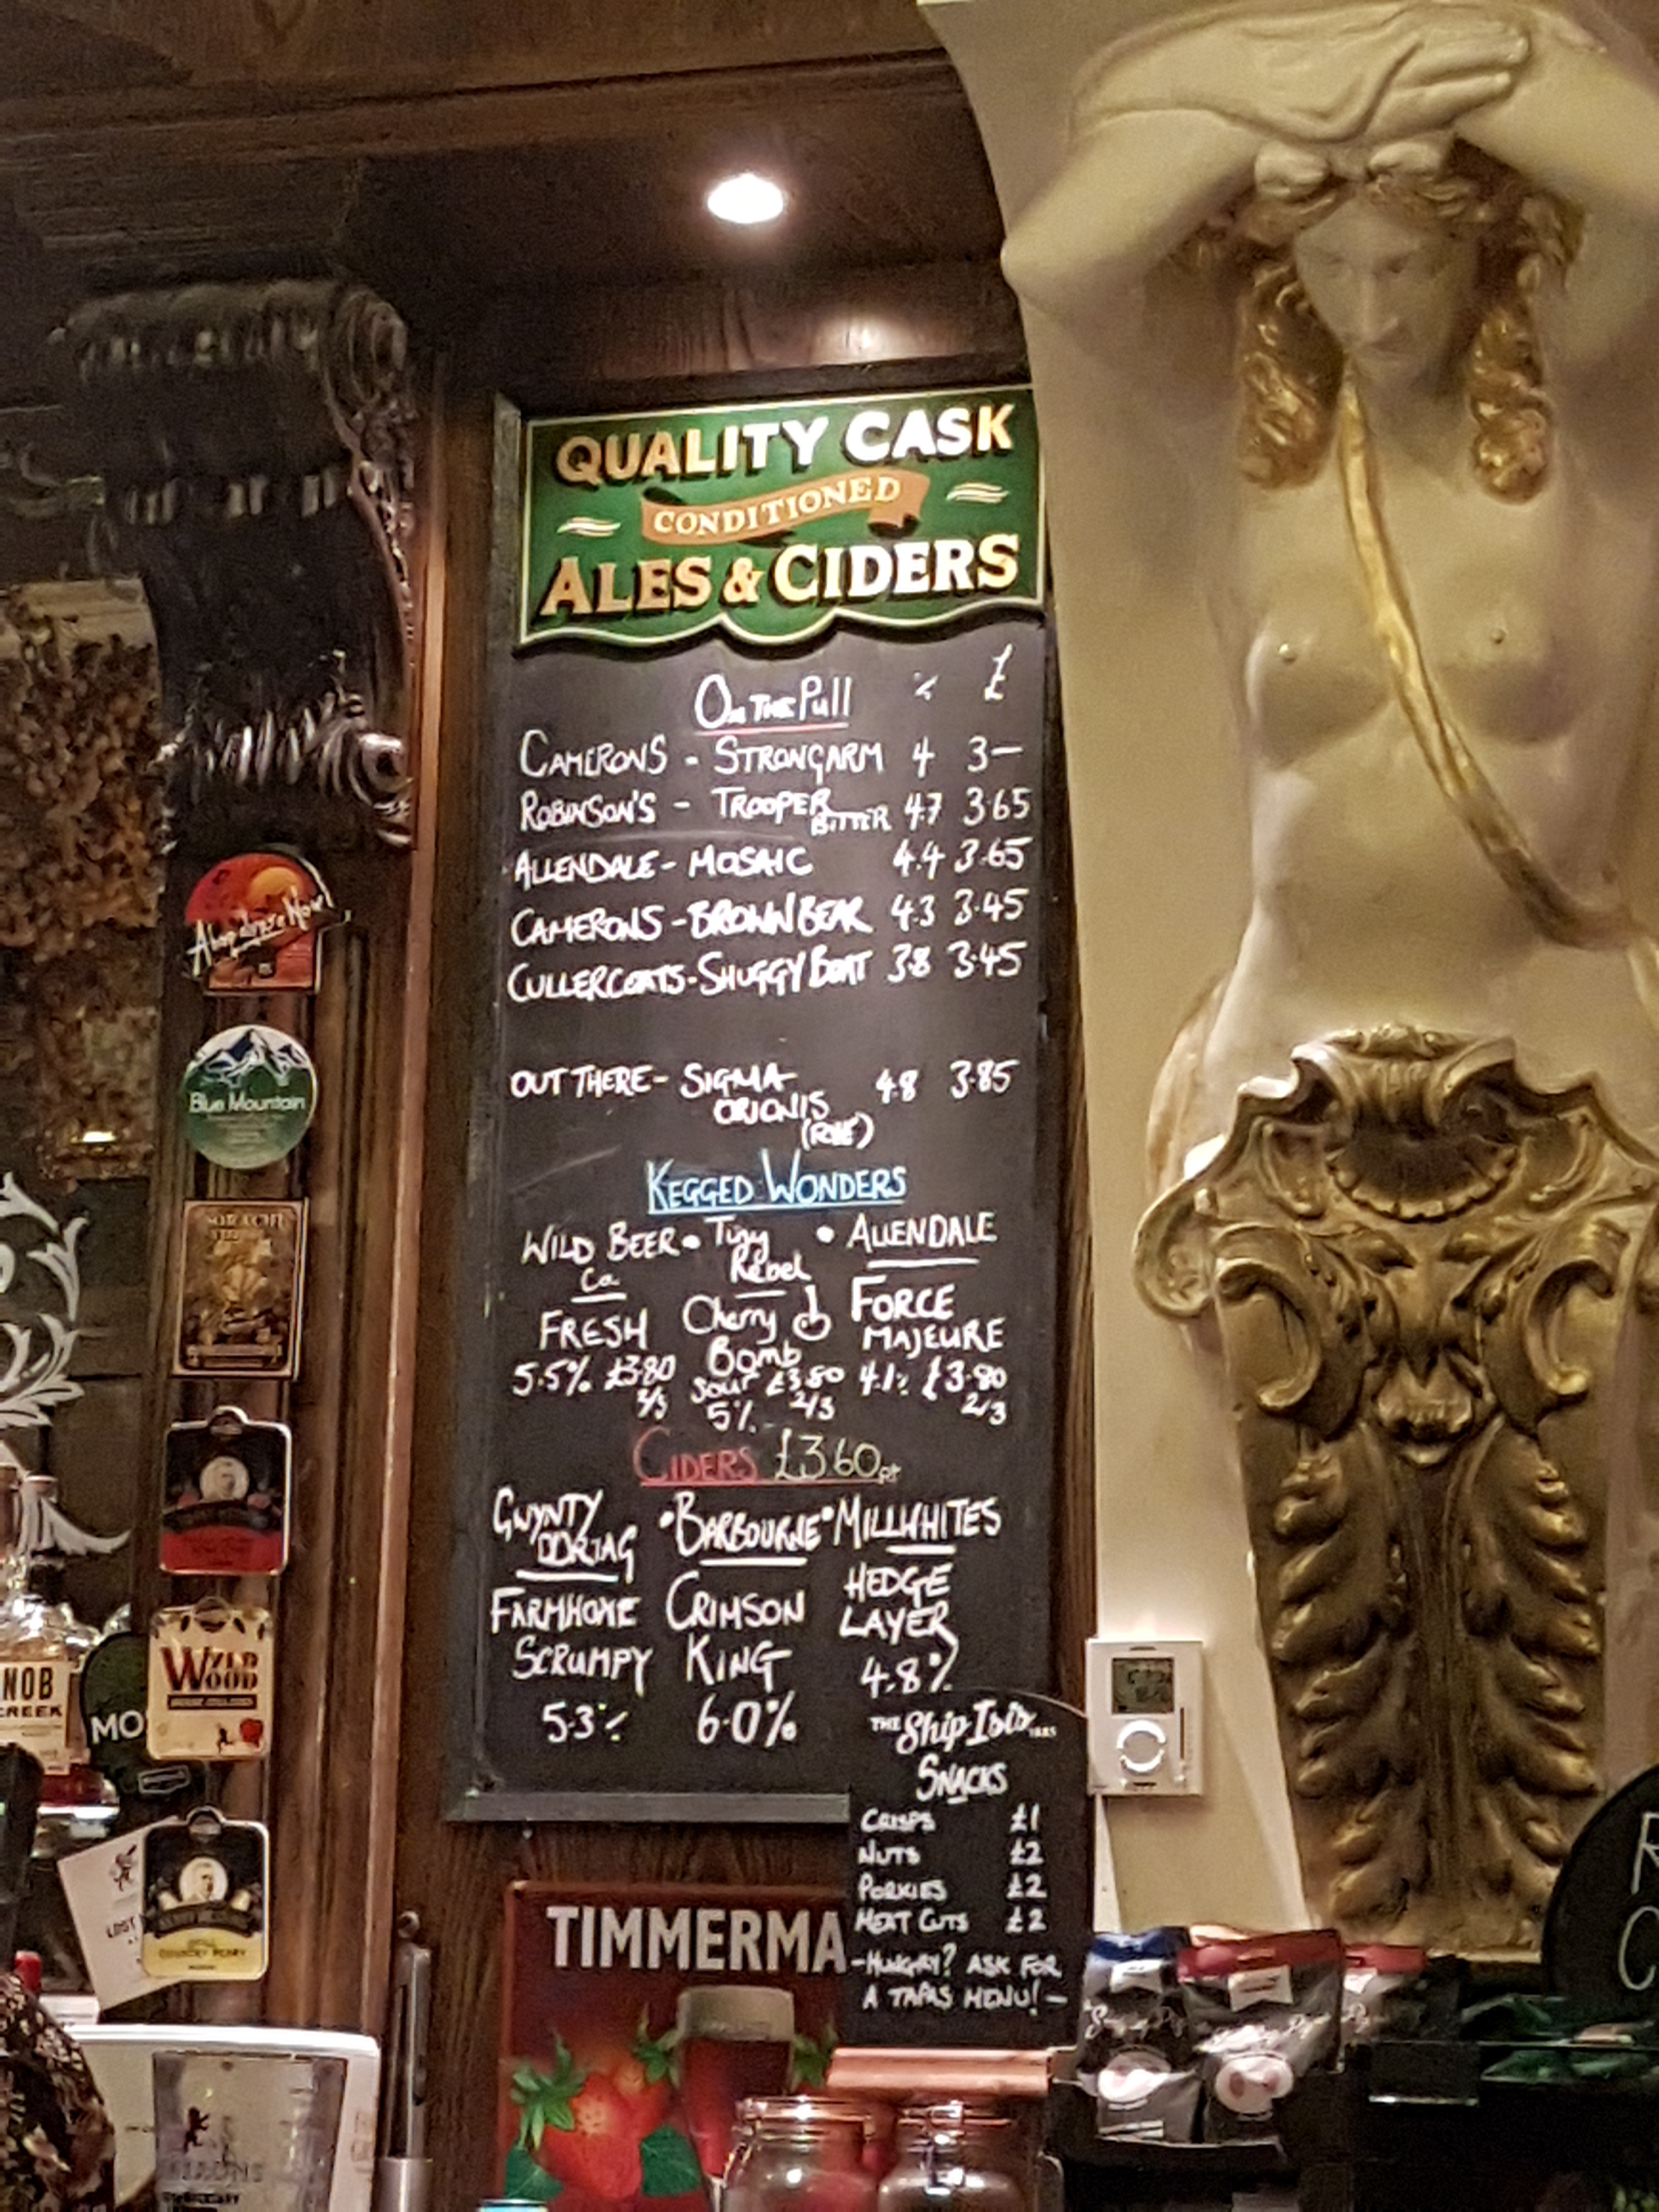 QUALITY CASK
CONDITIONED
ALES & CIDERS
ON THE PULL % £
CAMERONS - STRONGARM 4 3—
ROBINSON'S - TROOPER BITTER 4.7 3.65
ALLENDALE - MOSAIC 4.4 3.65
CAMERONS - BROWN BEAR 4.3 3.45
CULLERCOATS - SHUGGY BOAT 3.8 3.45
OUT THERE - SIGMA 4.8 3.85
ORIONIS
KEGGED WONDERS
WILD BEER Co
FRESH
5.5% £3.80
2/3
Tiny Rebel
Cherry
Bomb
Sour £3.80
5% 2/3
ALLENDALE
FORCE
MAJEURE
4.1% £3.80
2/3
CIDERS £3.60 pt
GWYNTY
DDRIAG
FARMHOME
SCRUMPY
5.3%
BARBOURNE
CRIMSON
KING
6.0%
MILLWHITES
HEDGE
LAYER
4.8%
THE Ship Isis
SNACKS
CRISPS £1
NUTS £2
PORKIES £2
MEAT CUTS £2
- HUNGRY? ASK FOR
A TAPAS MENU! -
TIMMERMA
Blue Mountain
SORACHI
WILD
WOOD
NOB
CREEK
MO
LOST
COUNTRY PERRY